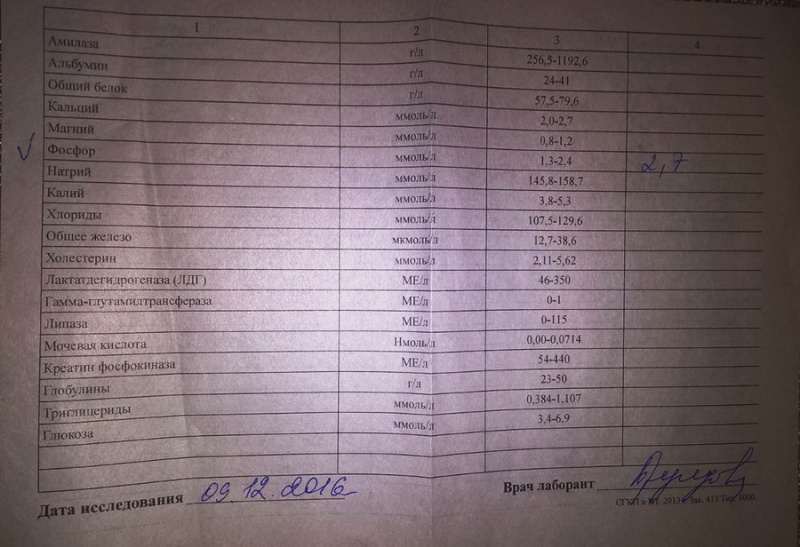 1 2 3 4
Амилаза г/л 256,5-1192,6
Альбумин г/л 24-41
Общий белок г/л 57,5-79,6
Кальций ммоль/л 2,0-2,7
Магний ммоль/л 0,8-1,2
Фосфор ммоль/л 1,3-2,4 2,7
Натрий ммоль/л 145,8-158,7
Калий ммоль/л 3,8-5,3
Хлориды ммоль/л 107,5-129,6
Общее железо мкмоль/л 12,7-38,6
Холестерин ммоль/л 2,11-5,62
Лактатдегидрогеназа (ЛДГ) МЕ/л 46-350
Гамма-глутамилтрансфераза МЕ/л 0-1
Липаза МЕ/л 0-115
Мочевая кислота Нмоль/л 0,00-0,0714
Креатин фосфокиназа МЕ/л 54-440
Глобулины г/л 23-50
Триглицериды ммоль/л 0,384-1,107
Глюкоза ммоль/л 3,4-6.9
Дата исследования 09.12.2016 Врач лаборант
2013 г. Зак. 413 Тир. 1000